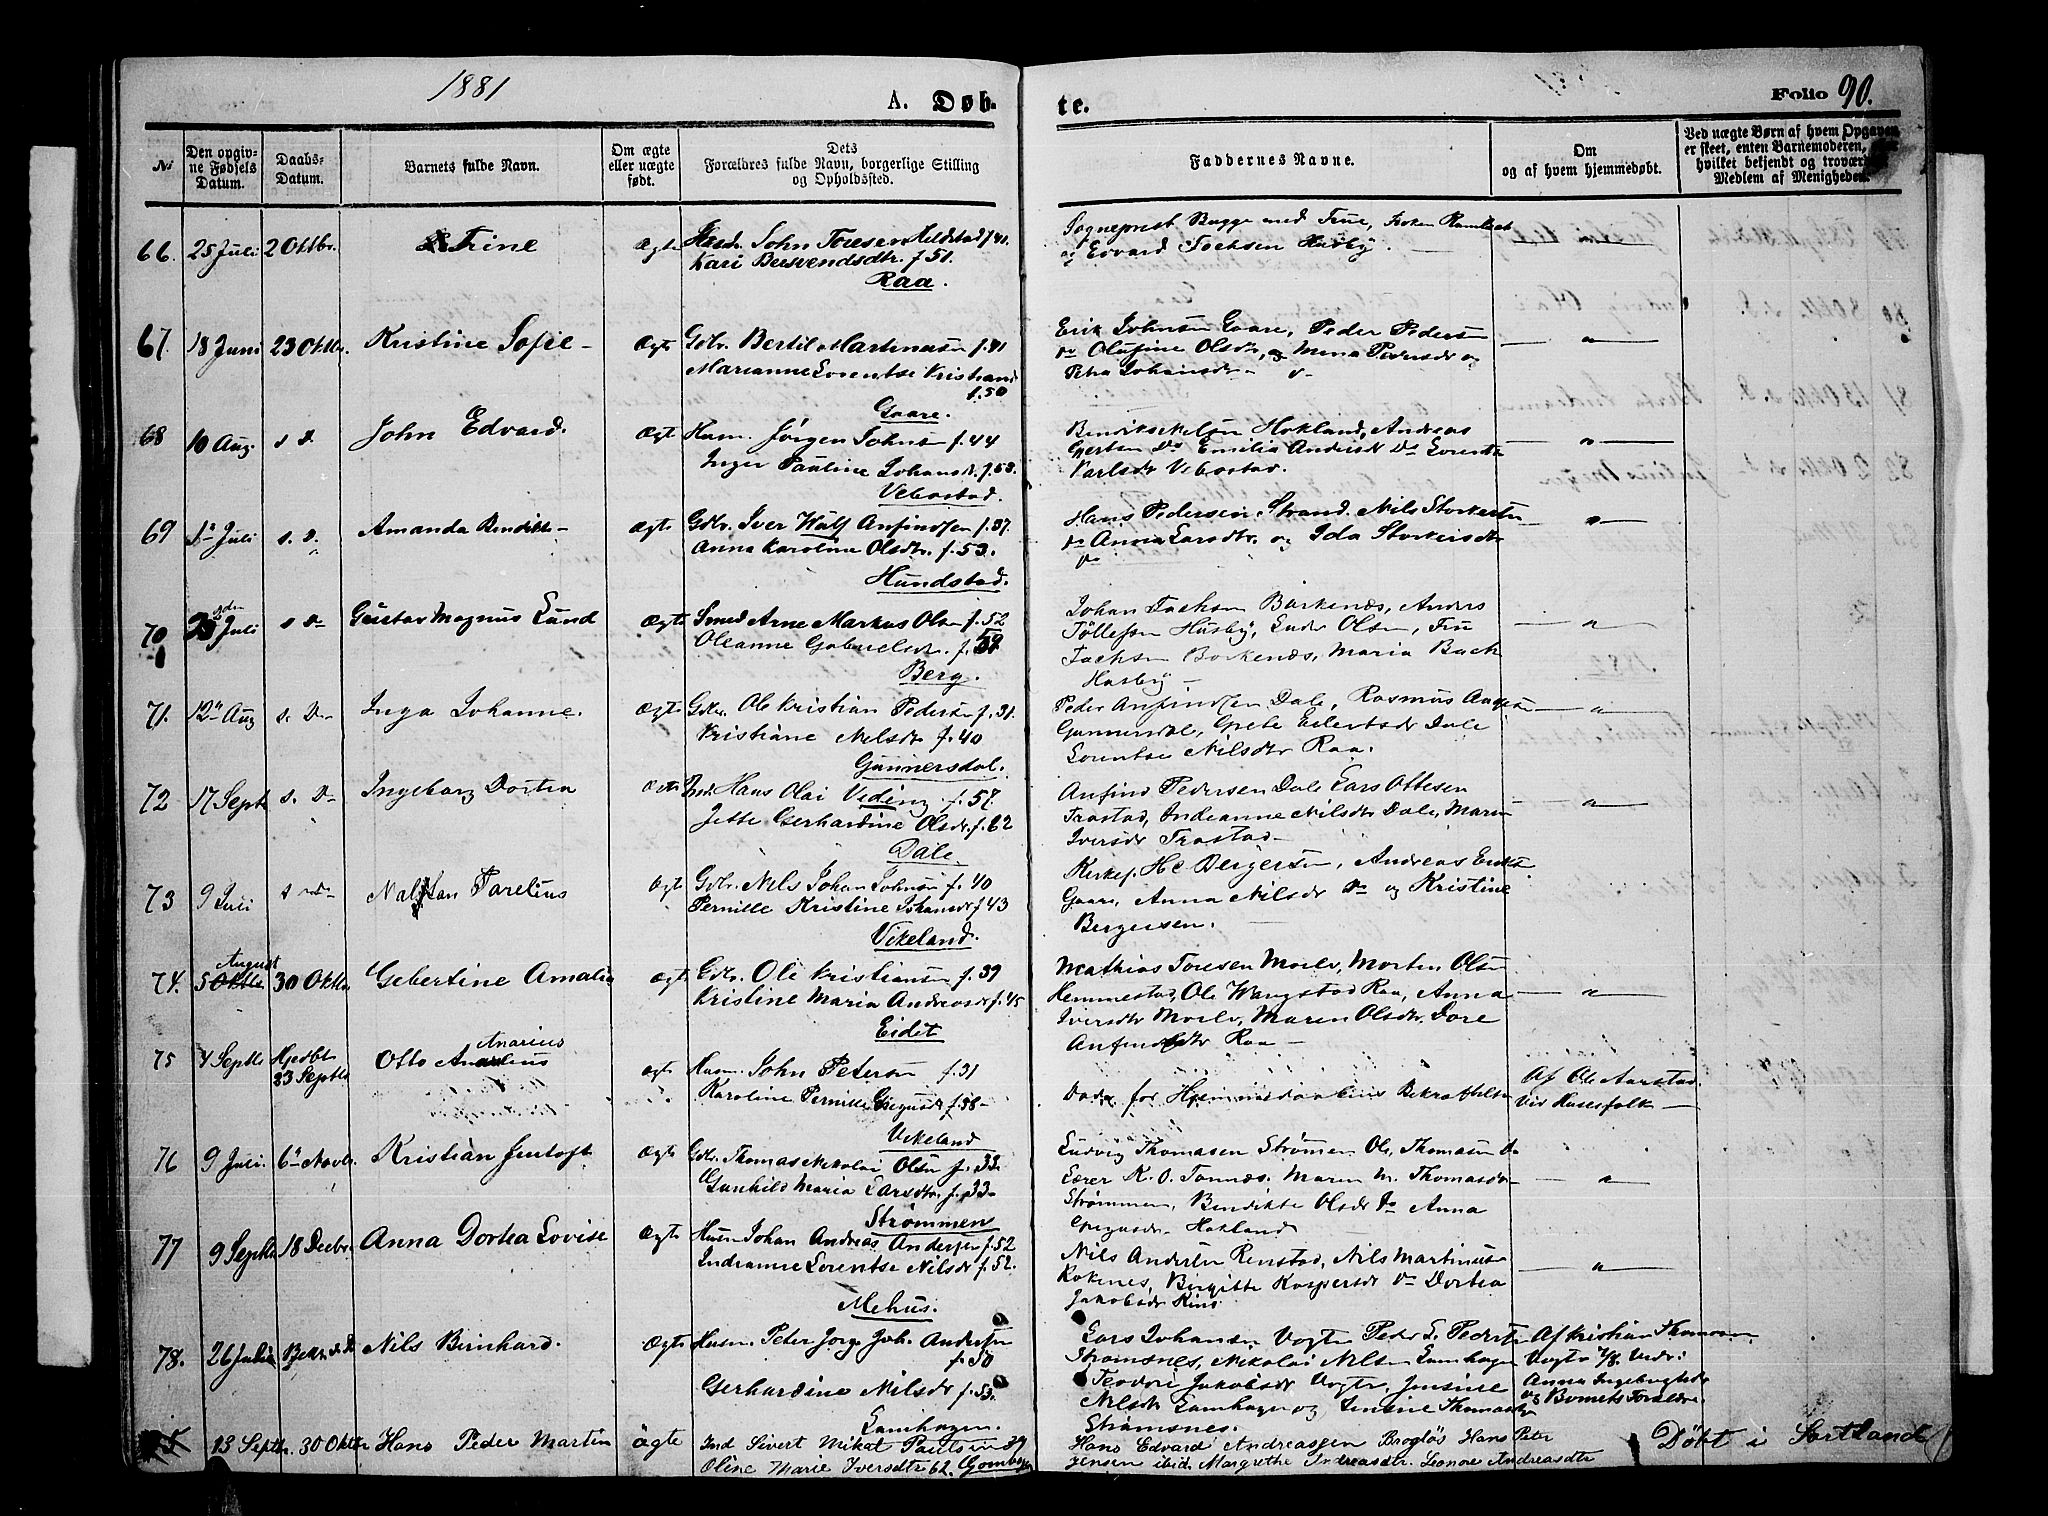 1881
A. Døb-
te.
Folio 90.
No
Den opgiv-
ne Fødsels
Datum.
Daabs-
Datum.
Barnets fulde Navn.
Om ægte
eller uægte
født.
Dets
Forældres fulde Navn, borgerlige Stilling
og Opholdssted.
Faddernes Navne.
Om
og af hvem hjemmedøbt.
Ved uægte Børn af hvem Opgaven
er skeet, enten Barnemoderen, eller
hvilket bekjendt og troværdigt
Medlem af Menigheden.
66. 25 Juli 2 Oktbr. Trine Ægte John Toresen Mildstad f 41.
Kari Bersvendsdtr. f 51.
Raa.
Sogneprest Bugge med Frue, Frøken
og Edvard Jachsen Husby.
67. 18 Juni 23 Oktbr. Kristine Sofie - Ægte Gdbr. Bertil Martinusen f. 41
Marianne Lorentse Kristiansd
f. 50
Gaare.
Erik Johnsen Gaare, Peder Pedersen
Do Olufine Olsdtr, og Mina Pedersdtr og
Petra Johansdtr - Do
— " —
68 10 Aug. s. D. John Edvard. Ægte Husm. Jørgen Johnsen f. 44
Inger Pauline Johansdtr. f. 53.
Vebostad.
Hokland, Andreas
Gertsen Do Emilia Andersdtr Do Lorentse
Karlsdtr Vebostad.
— " —
69 1ste Juli s. D. Amanda Bendikte - Ægte Gdbr. Iver Wulf Anfindsen f. 37.
Anna Karoline Olsdtr. f. 53.
Hundstad.
Hans Pedersen Strand. Nils Storkersen
Do Anna Larsdtr. og Ida Storkersdtr
Do
— " —
70 Juli s D Gustav Magnus Lund Ægte Smed Arne Markus Olsen f. 52
Oleanne Gabrielsdtr. f.
Berg.
Johan Jachsen Barkenæs, Anders
Tøllefsen Husby, Olsen, Fru
Jachsen Borkenæs, Maria Bach
Husby -
— " —
71. 12te Aug s. D. Inga Johanne. Ægte Gdbr. Ole Kristian Pedersen f. 31.
Kristiane Nelsdtr f. 40
Gunnersdal.
Peder Anfindsen Dale, Rasmus
Gunnersdal, Grete Eilertsdtr Dale
Lorentse Nilsdtr Raa.
— " —
72 17 Septb s. D. Ingeborg Dortea Ægte Ind. Hans Olai Veding f. 57.
Jette Gerhardine Olsdtr. f. 62
Dale
Anfind Pedersen Dale Lars Ottesen
Trastad, Indianne Nilsdtr Dale, Maren
Iversdtr Trastad -
— " —
73 9 Juli s D. Parelius Ægte Gdbr. Nils Johan Johnsen f. 40
Pernille Kristine Johansdtr f 43
Vikeland.
Kirkes. Hc Bergersen, Andreas Eriksen
Gaare, Anna Nilsdtr Do og Kristine
Bergersen.
74. August
5 Oktbr 30 Oktbr Gebertine Amalia ægte Gdbr. Ole Kristiansen f. 39
Kristine Maria Andreasdtr f. 45
Eidet
Mathias Toresen Moelv, Morten Olsen
Hemmestad, Ole Wangstad Raa, Anna
Iversdtr Moelv, Maren Olsdtr, Dore
Anfindsdtr Raa -
— " —
75 4 Septbr Hjedbt
23 Septbr Otto Anarius ægte Husm. John Petersen f. 31
Karoline Pernille f. 58 -
Vikeland
Døde før Hjemmedaabens Bekræftelse
Af Ole Aarstad
ved Husesfolk —
76 9 Juli. 6te Novbr. Kristian Jentoft Ægte Gdbr. Thomas Nikolai Olsen f. 33.
Gunhild Maria Larsdtr. f. 33 -
Strømmen
Ludvig Thomasen Strømen Ole Thomasen Do
Lærer K. O. Tonnæs. Maren M. Thomasdtr -
Strømmen, Bendikte Olsdtr Do Anna
Hokland -
— " —
77 9 Septbr 18 Decbr. Anna Dortea Lovise Ægte Husm Johan Andreas Andersen f. 52
Indianne Lorentse Nilsdtr f. 52.
Mehus.
Nils Andersen Renstad, Nils Martinus -
Kokenes, Birgitte Kaspersdtr Do Dortea
Jakobsdtr
— " —
78. 26 Juli Nils Birnhard. Ægte Husm. Peter Jørg. Joh. Andersen
f. 50
Gerhardine Nilsdtr f. 53.
Lamhagen.
Lars Johansen Vogts Peder L. Pedersen
Strømsnes, Nikolai Nilsen Lamhagen
Teodore Jakobsdtr Vogts, Jensine
Nilsdtr Lamhagen og Thomasdtr
Strømsnes.
Af Kristian Thomasen
Vogts 7/8. Vedr:
Anna Ingebrigtsdtr
og Barnets Forældre
13 Septbr. 30 Oktbr Hans Peder Martin ägte Ind Sivert Mikal Paulsen 39
Oline Marie Iversdtr 62.
Hans Edvard Andreassen Hans Peter
Jensen ibid. Margrethe Andreasdtr. Leonore Andreasdtr
Døbt i Sortland